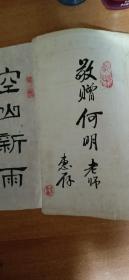 敬赠何明老师
惠存
空山新雨